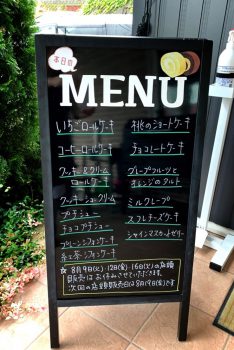 本日の
MENU
いちごロールケーキ
コーヒーロールケーキ
クッキー&クリーム
ロールケーキ
クッキーシュークリーム
プチシュー
チョコプチシュー
プレーンシフォンケーキ
紅茶シフォンケーキ
桃のショートケーキ
チョコレートケーキ
グレープフルーツと
オレンジのタルト
ミルクレープ
スフレチーズケーキ
シャインマスカットゼリー
☆ 8月9日(火) 12日(金) 16日(火)の店頭
販売はお休みさせていただきます。
次回の店頭販売日は8月19日(金)です